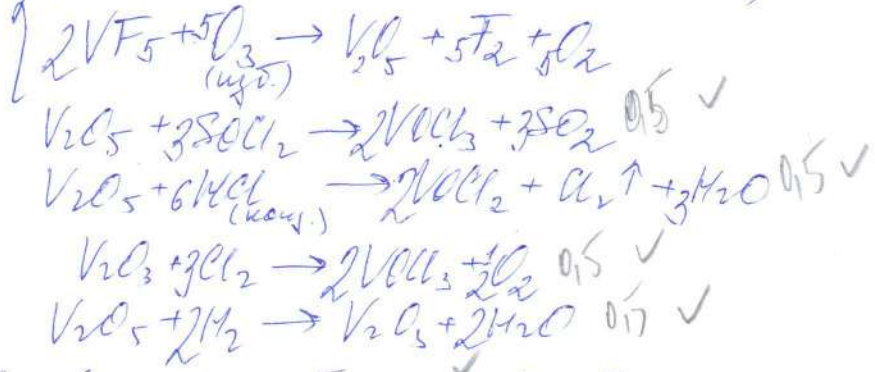 2VF₅ + 5O₃ (изб.) → V₂O₅ + 5F₂ + 5O₂
V₂O₅ + 3SOCl₂ → 2VOCl₃ + 3SO₂ 0,5 ✓
V₂O₅ + 6HCl (конц.) → 2VOCl₂ + Cl₂↑ + 3H₂O 0,5 ✓
V₂O₃ + 3Cl₂ → 2VOCl₃ + ½O₂ 0,5 ✓
V₂O₅ + 2H₂ → V₂O₃ + 2H₂O 0,5 ✓